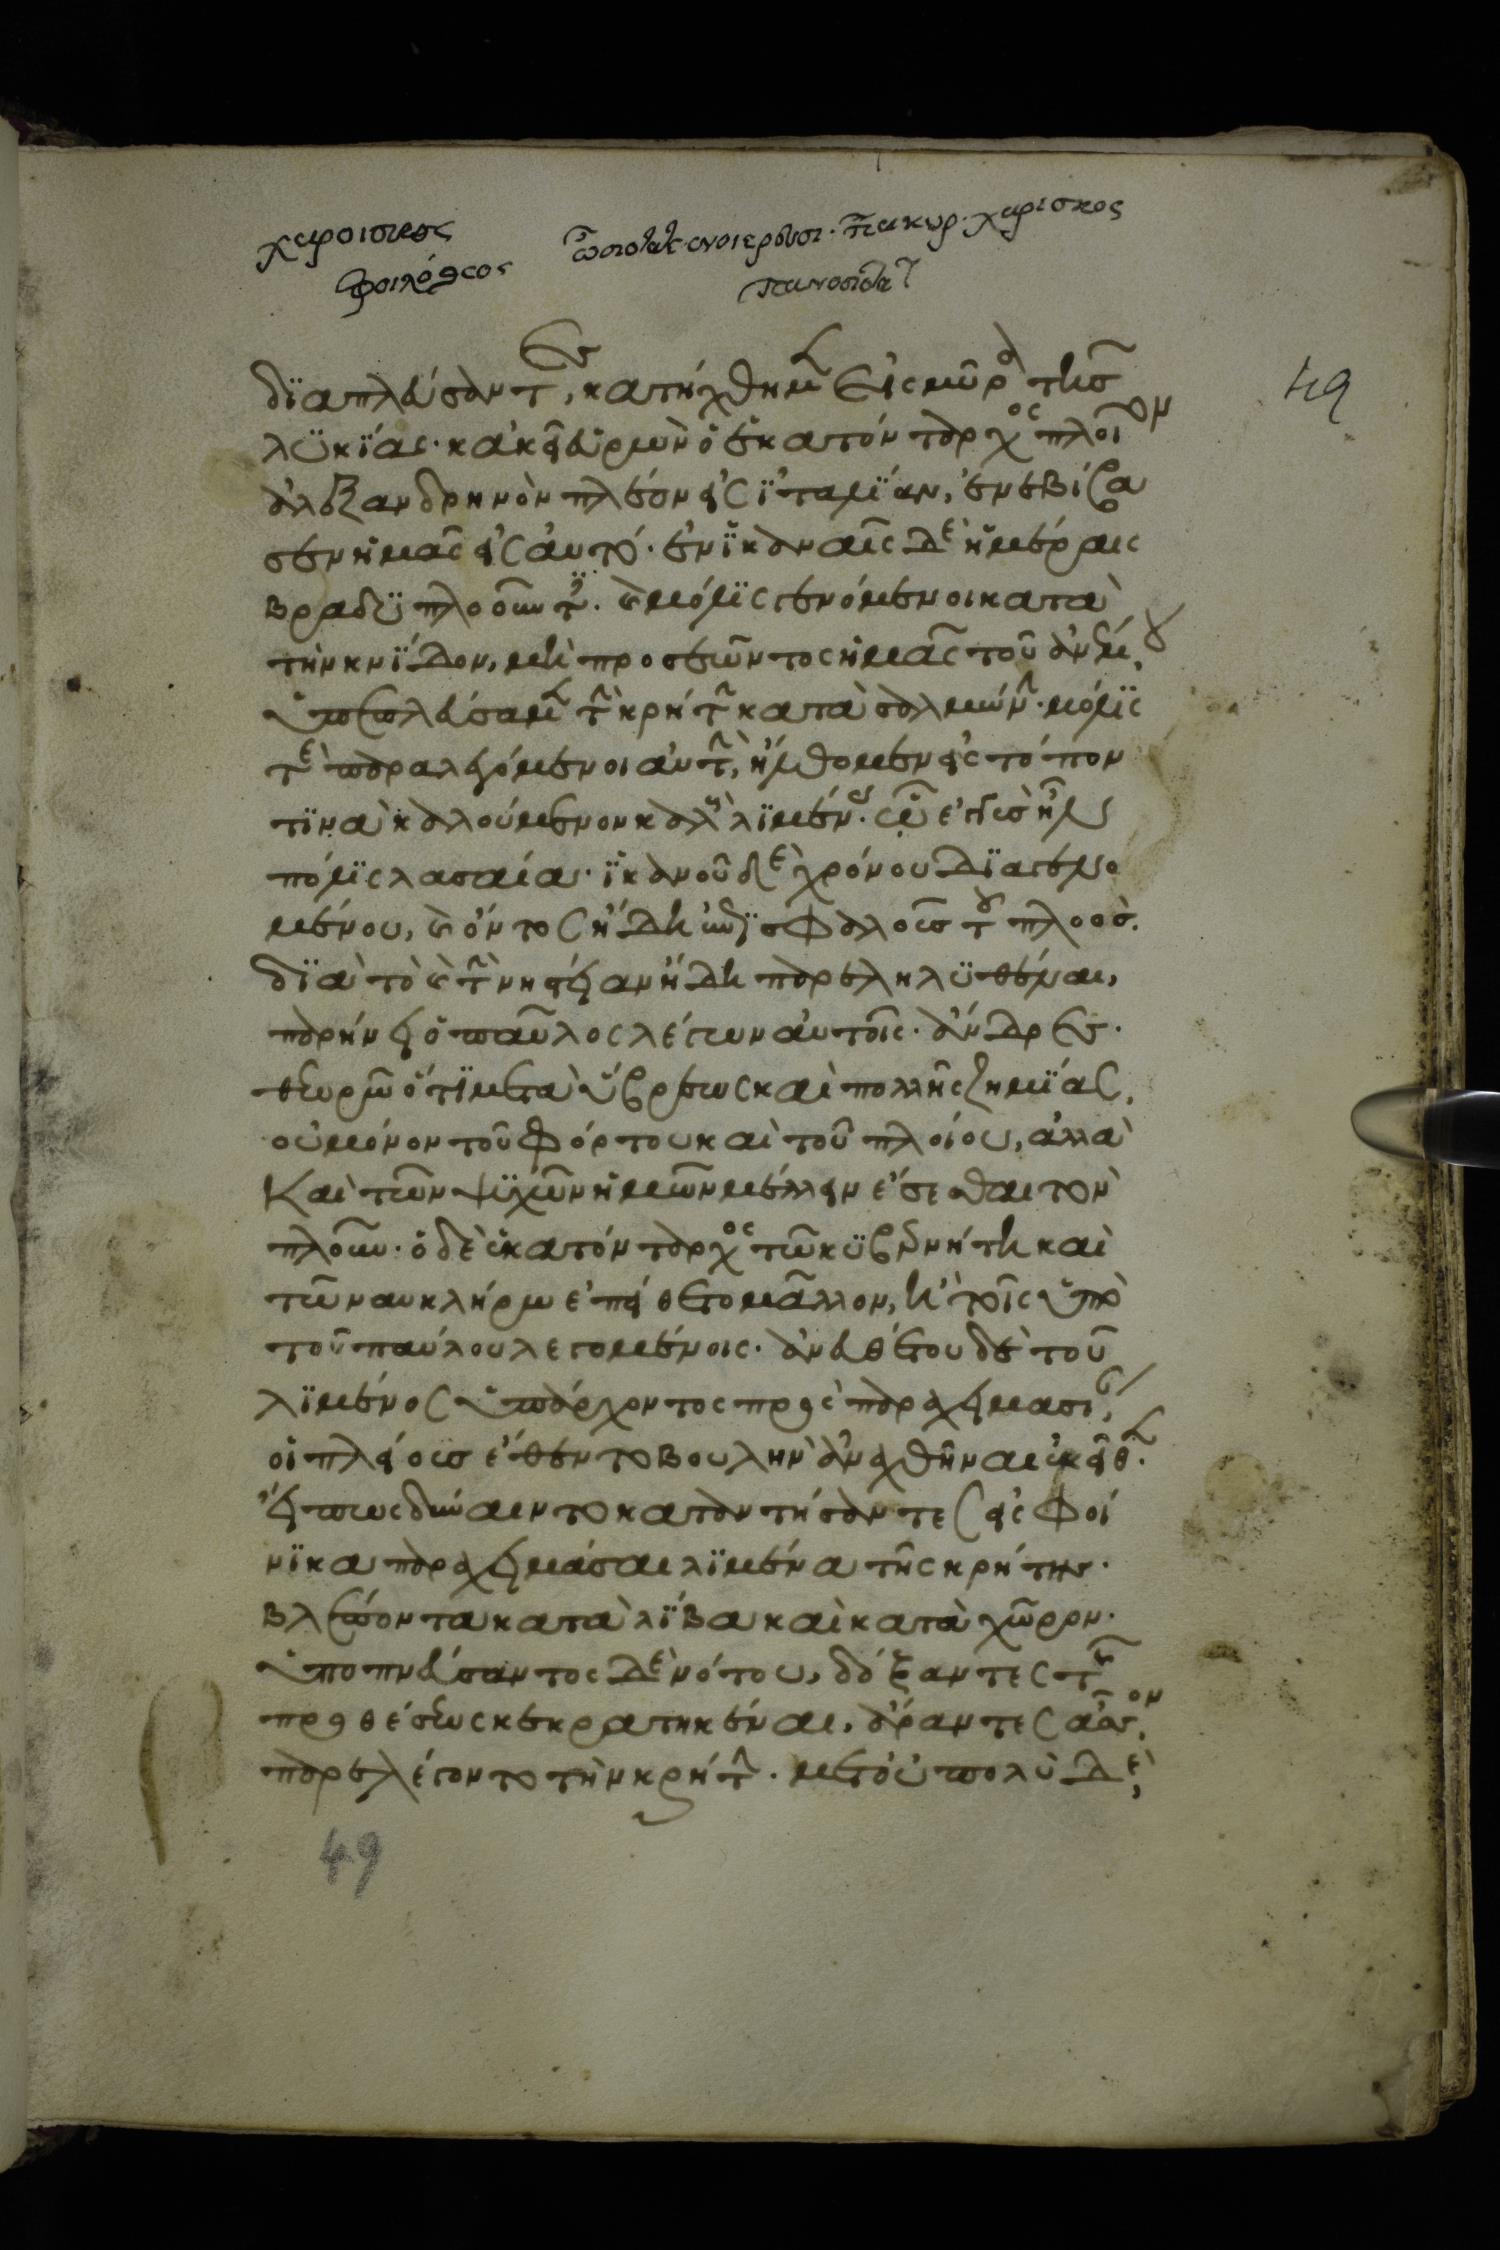 χαροισκος
φιλόθεος
πανοσιότατ
49
διαπλεύσαντες, κατήχθημεν εἰς μῦρα τῆς
λϋκΐας· κἀκεῖ εὑρὼν ὁ ἑκατόνταρχος πλοῖον
ἀλεξανδρηνὸν πλέον εἰς ϊταλΐαν, ἐνεβίβα
σεν ἡμᾶς εἰς αὐτό· ἐν ϊκαναῖς δὲ ἡμέραις
βραδϋπλοοῦντες· καὶ μόλϊς γενόμενοι κατὰ
τὴν κνΐδον, μὴ προσεῶντος ἡμᾶς τοῦ ἀνέμου,
ὑπεπλεύσαμεν τὴν κρήτην κατὰ σαλμώνην· μόλϊς
τὲ παραλεγόμενοι αὐτὴν, ἤλθομεν εἰς τόπον
τϊνὰ καλούμενον καλοὺς λϊμένας· ᾧ ἐγγὺς ἦν
πόλϊς λασαία· ϊκανοῦ δὲ χρόνου δϊαγενο
μένου, καὶ ὄντος ἤδη ἐπϊσφαλοῦς τοῦ πλοός·
δϊὰ τὸ καὶ τὴν νηστείαν ἤδη παρεληλϋθέναι,
παρήνει ὁ παῦλος λέγων αὐτοῖς· ἄνδρες·
θεωρῶ ὅτϊ μετὰ ὕβρεως καὶ πολλῆς ζημΐας,
οὐ μόνον τοῦ φόρτου καὶ τοῦ πλοίου, ἀλλὰ
καὶ τῶν ψϋχῶν ἡμῶν μέλλειν ἔσεσθαι τὸν
πλοῦν· ὁ δὲ ἑκατόνταρχος τῶ κϋβερνήτη καὶ
τῶ ναυκλήρω ἐπείθετο μᾶλλον, ἢ τοῖς ὑπὸ
τοῦ παύλου λεγομένοις· ἀνευθέτου δὲ τοῦ
λϊμένος ὑπάρχοντος πρὸς παραχειμασίαν,
οἱ πλείους ἔθεντο βουλὴν ἀναχθῆναι ἐκεῖθεν·
εἴπως δύναιντο καταντήσαντες εἰς φοί
νϊκα παραχειμάσαι λϊμένα τῆς κρήτης·
βλέποντα κατὰ λΐβα καὶ κατὰ χῶρον·
ὑποπνεύσαντος δὲ νότου, δόξαντες τῆς
προθέσεως κεκρατηκέναι, ἄραντες ἆσσον,
παρελέγοντο τὴν κρήτην· μετ᾽ οὐ πολὺ δὲ,
49